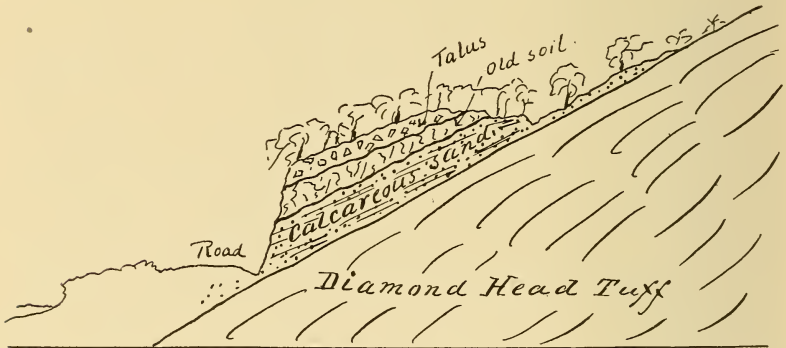 Talus
Old soil.
Calcareous sand
Road
Diamond Head Tuff